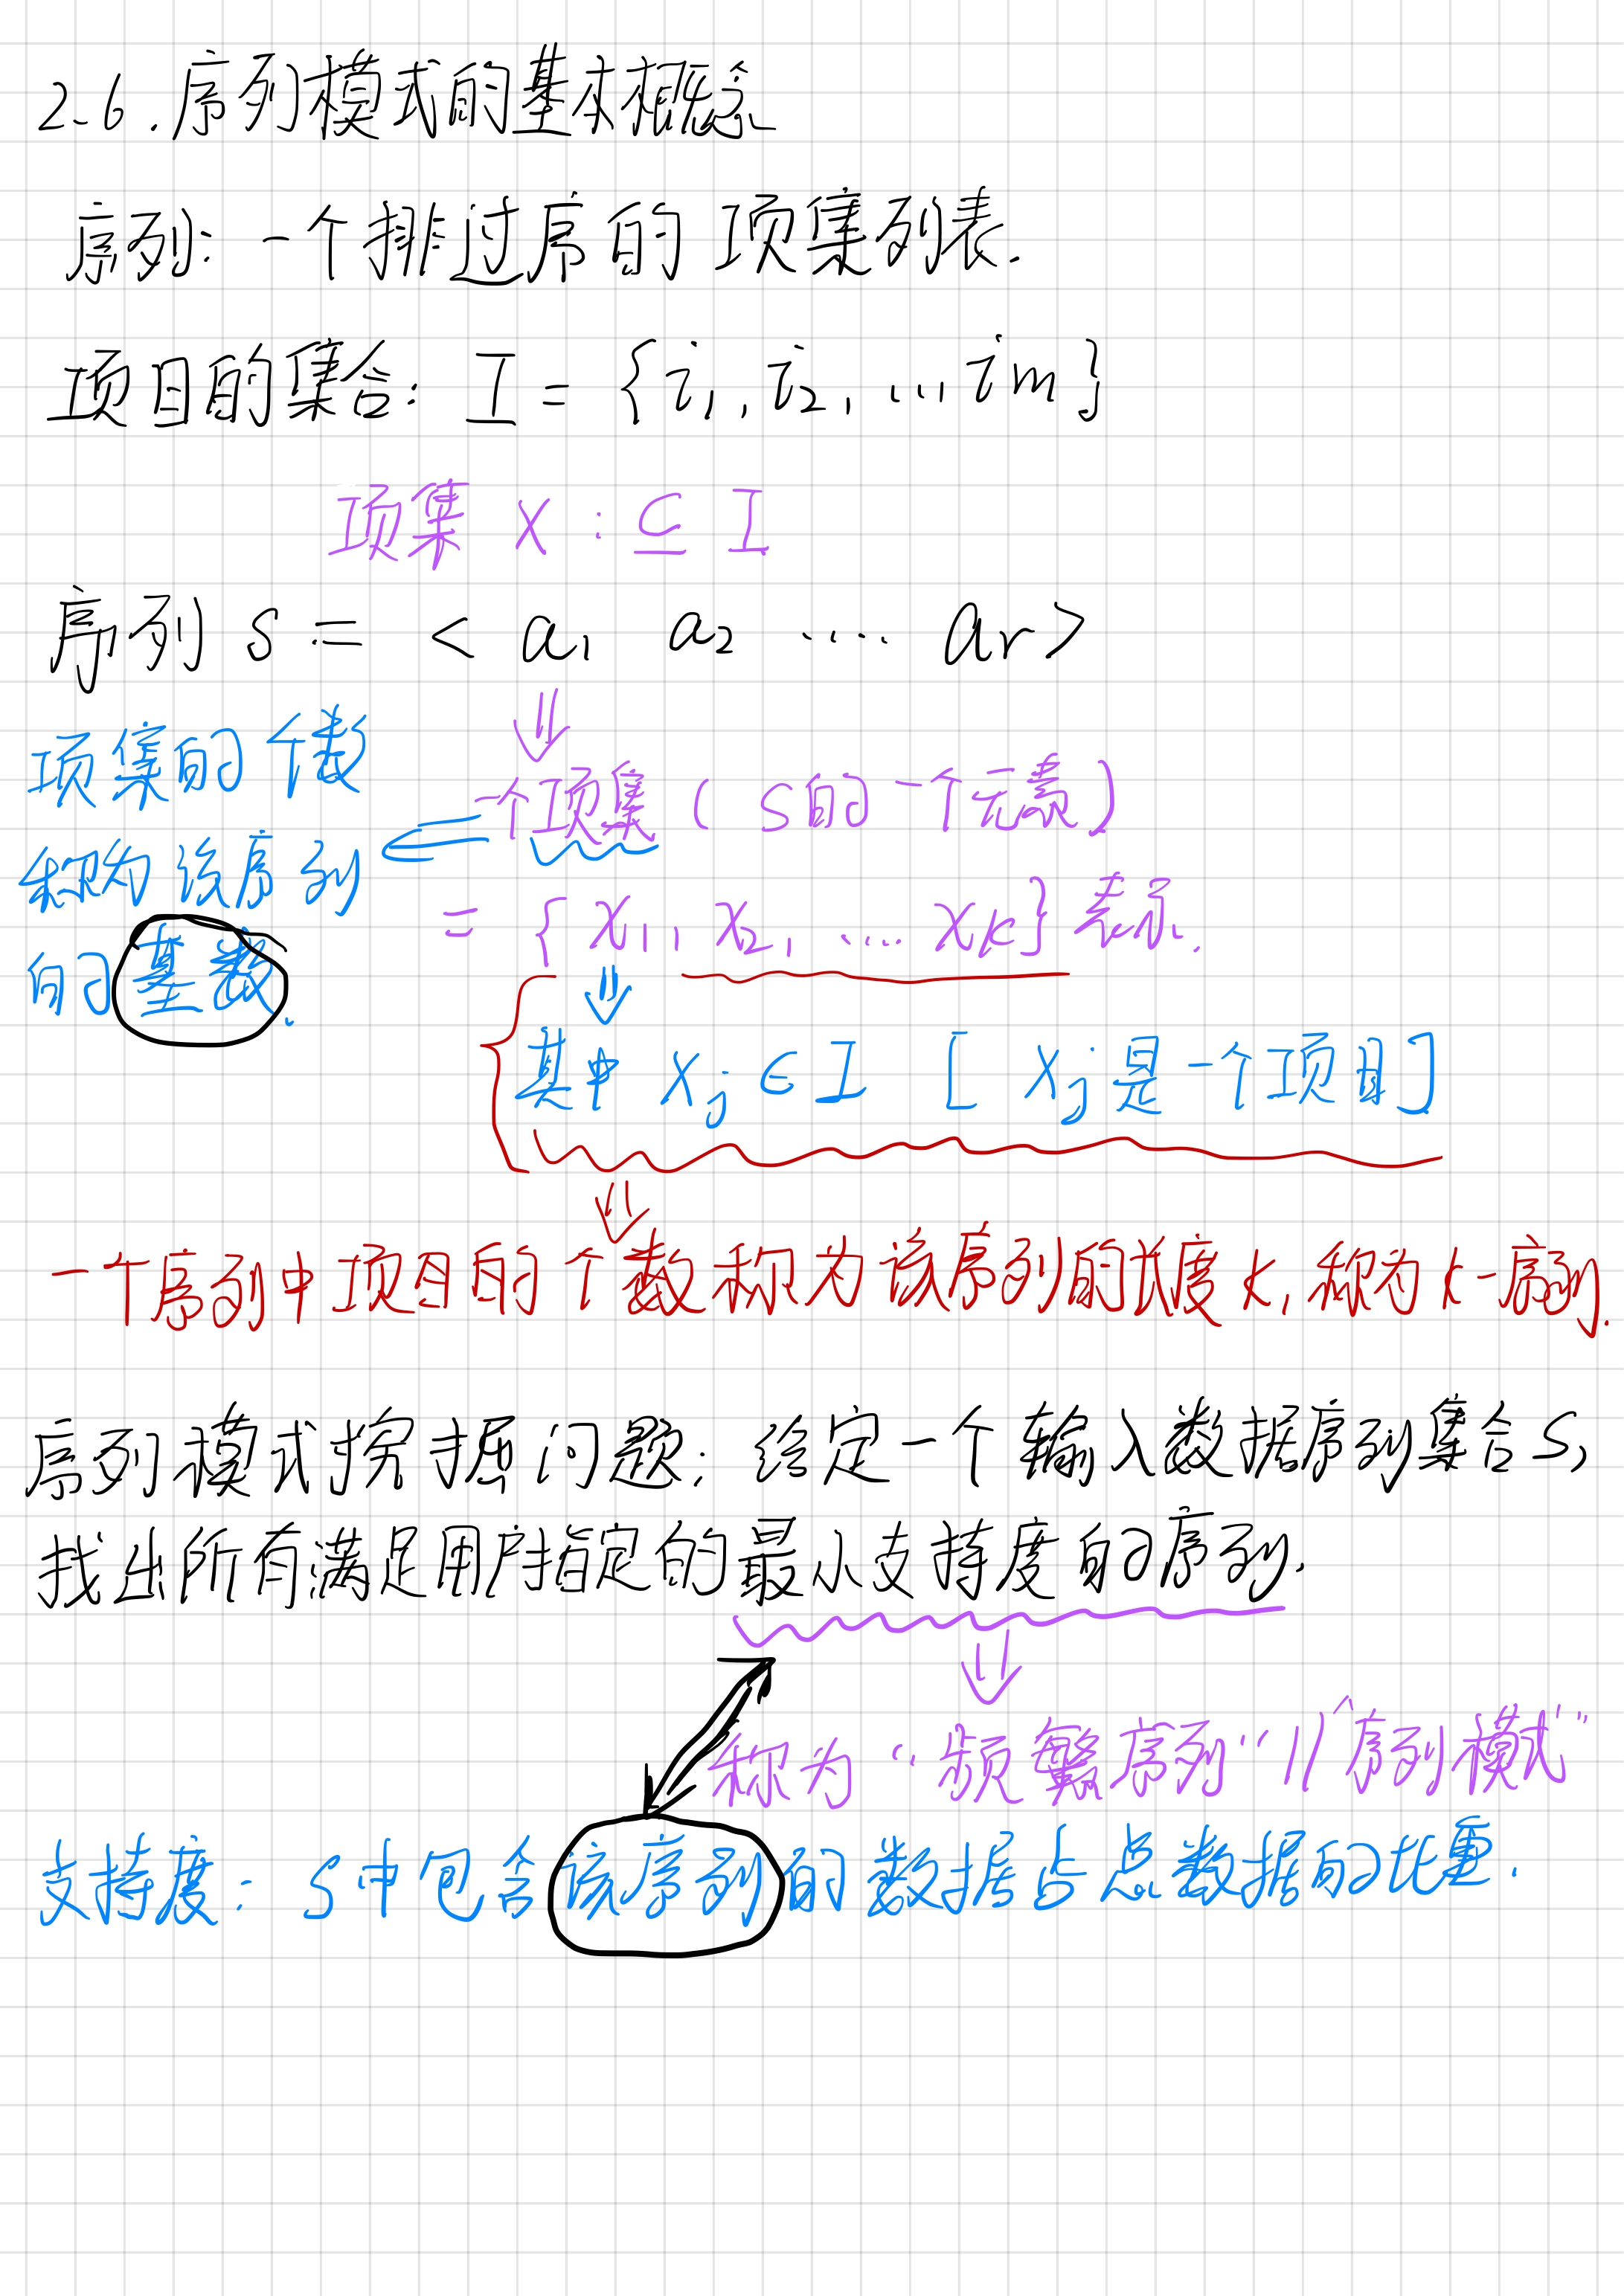 2.6.序列模式的基本概念
序列:一个排过序的项集列表.
项目的集合: I = {i1, i2, ... im}
项集 X : ⊆ I
序列 s := < a1 a2 .... ar>
⇓
项集的个数
一个项集(s的一个元素)
称为该序列 ⇐
= {x1, x2, .... xk} 表示.
的基数.
⇓
其中 xj ∈ I [ xj 是一个项目]
⇓
一个序列中项目的个数称为该序列的长度k,称为k-序列.
序列模式挖掘问题:给定一个输入数据序列集合S,
找出所有满足用户指定的最小支持度的序列.
⇓
称为“频繁序列“ // “序列模式”
支持度: S中包含该序列的数据占总数据的比重.